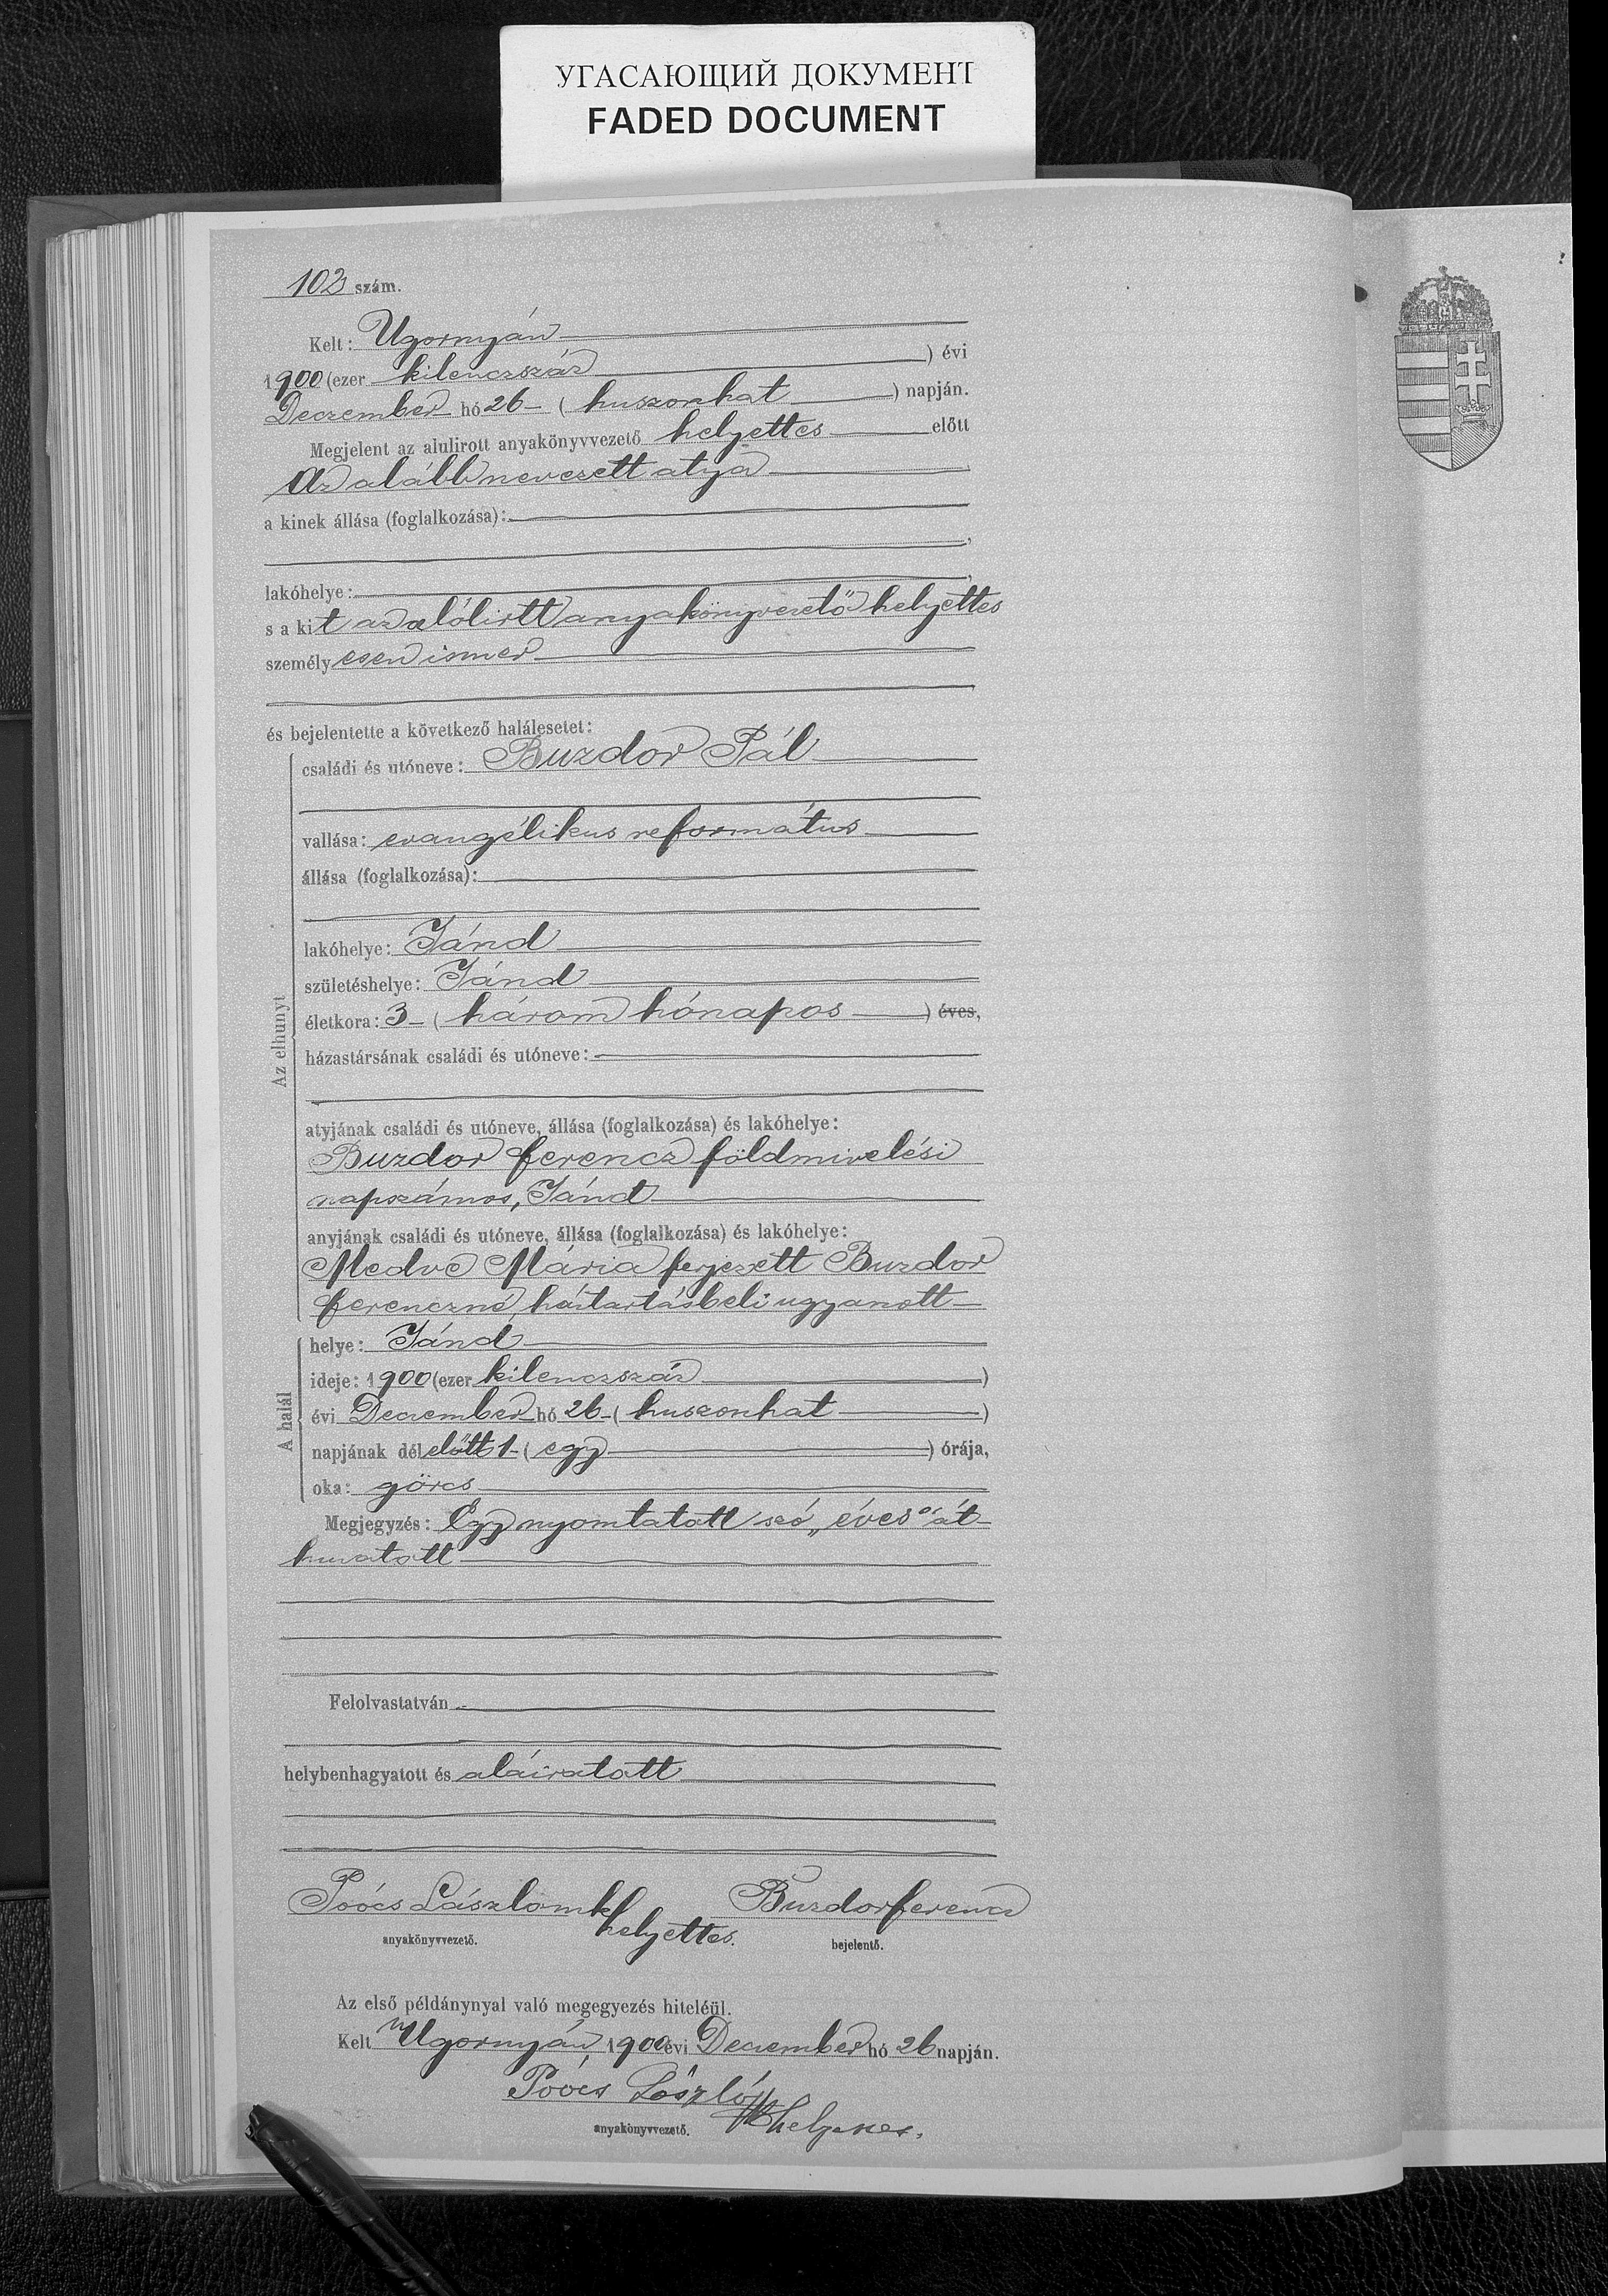 УГАСАЮЩИЙ ДОКУМЕНТ
FADED DOCUMENT
102 szám.
Kelt: Ugornyán
1900 (ezer kilenczszáz ) évi
Deczember hó 26 - ( huszonhat ) napján.
Megjelent az alulirott anyakönyvvezető helyettes előtt
Az alább nevezett atya
a kinek állása (foglalkozása):
lakóhelye:
s a kit az alólirtt anyakönyvvezető helyettes
személyesen ismer
és bejelentette a következő halálesetet:
Az elhunyt
családi és utóneve: Buzdor Pál
vallása: evangélikus református
állása (foglalkozása):
lakóhelye: Jánd
születéshelye: Jánd
életkora: 3 - ( három hónapos ) éves,
házastársának családi és utóneve:
atyjának családi és utóneve, állása (foglalkozása) és lakóhelye:
Buzdor Ferencz földmivelési
napszámos, Jánd
anyjának családi és utóneve, állása (foglalkozása) és lakóhelye:
Medve Mária ferjezett Buzdor
Ferenczné, háztartásbeli ugyanott
A halál
helye: Jánd
ideje: 1900 (ezer kilenczszáz )
évi Deczember hó 26 - ( huszonhat )
napjának délelőtt 1 - ( egy ) órája,
oka: görcs
Megjegyzés: Egy nyomtatott szó „éves" át-
huzatott
Felolvastatván
helybenhagyatott és aláiratott
Poócs László mk Buzdor Ferencz
helyettes.
anyakönyvvezető. bejelentő.
Az első példánynyal való megegyezés hiteléül.
Kelt Ugornyán 1900 évi Deczember hó 26 napján.
Poócs László
anyakönyvvezető. helyettes.